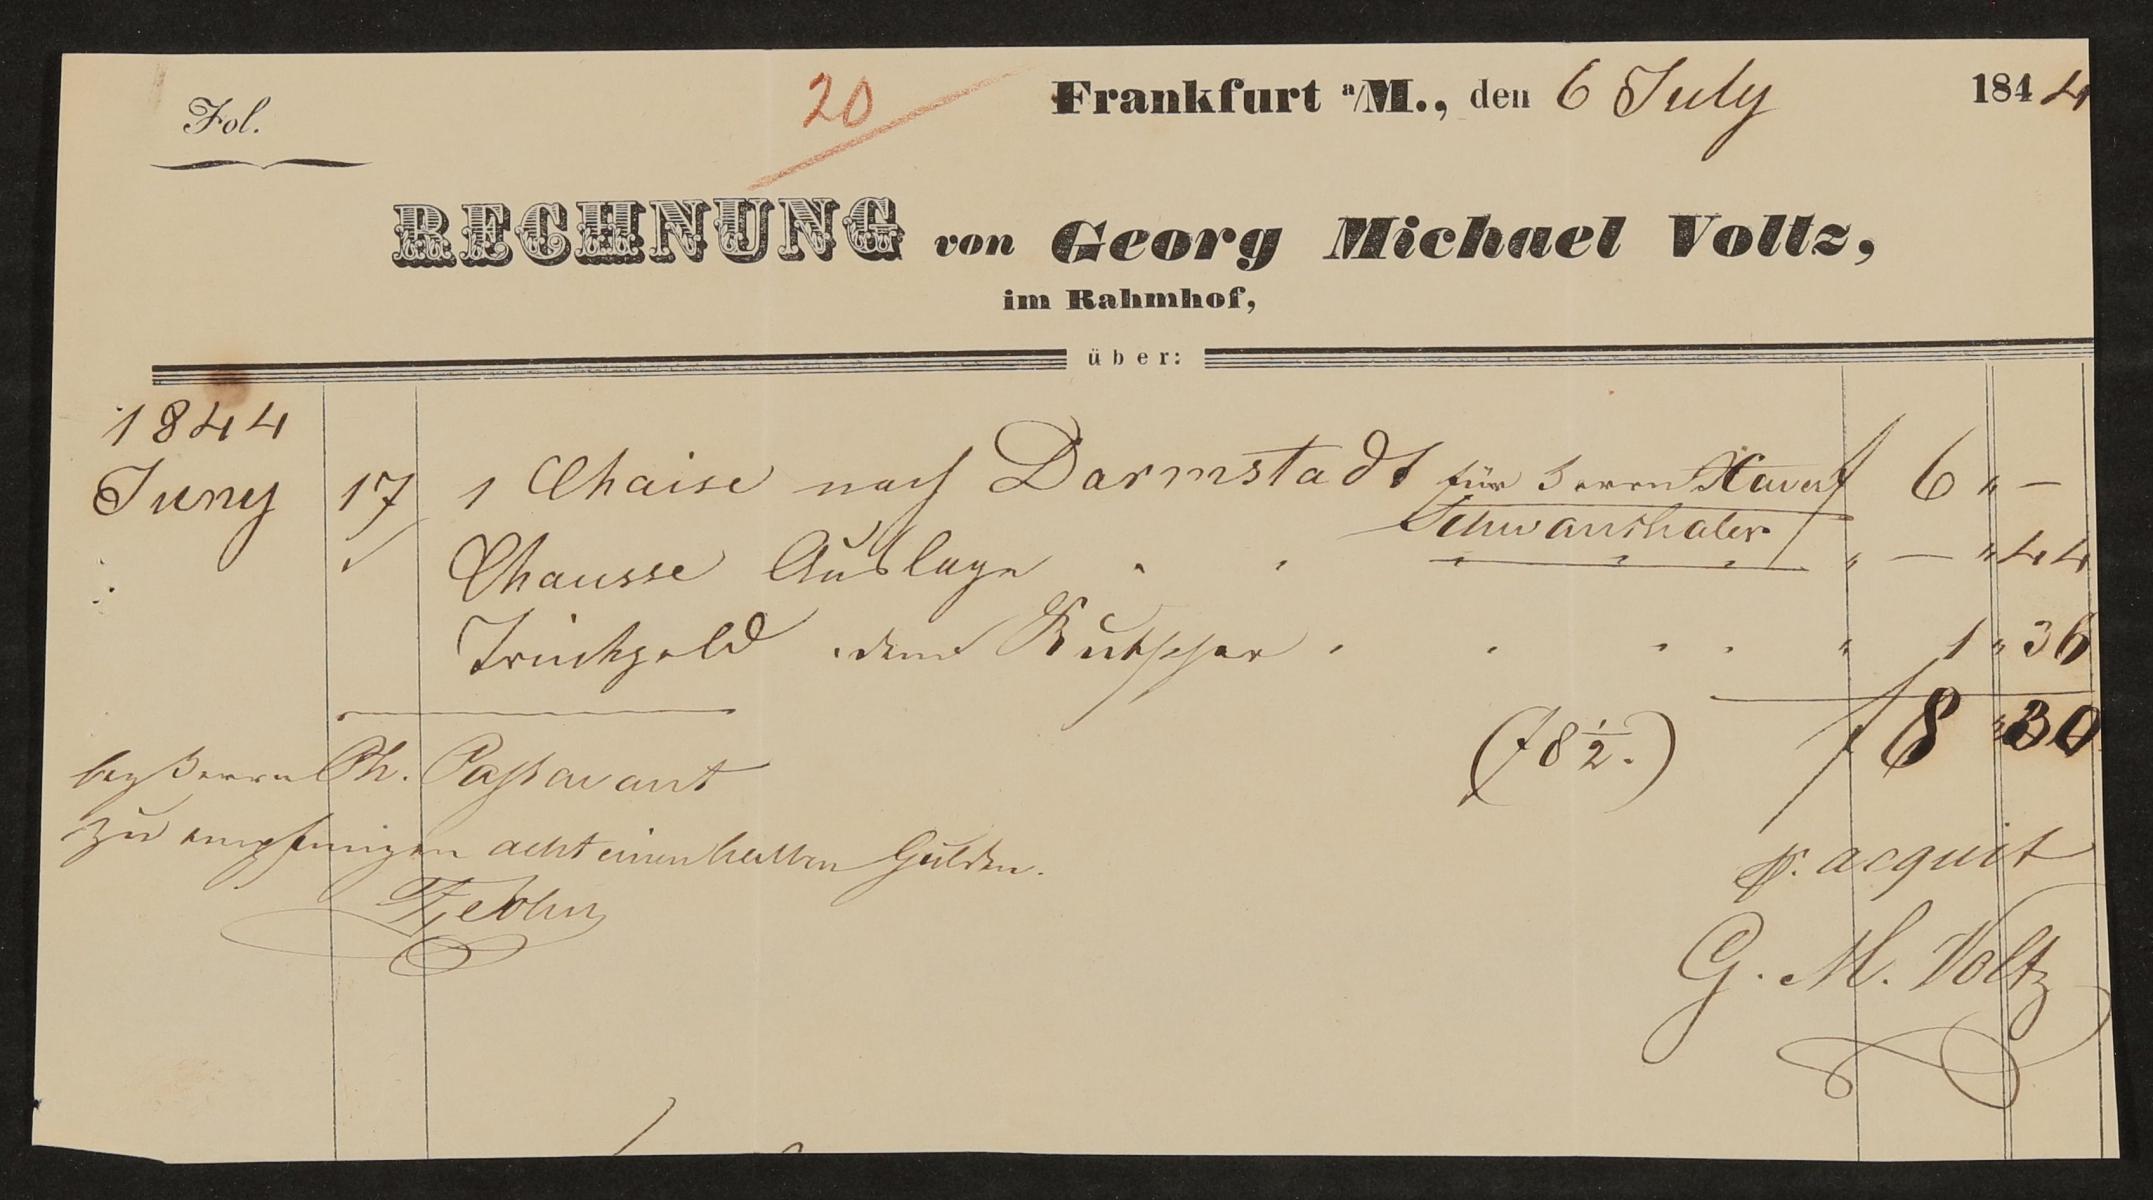 Fol.
20
Frankfurt a/M., den 6 July 1844
RECHNUNG von Georg Michael Voltz,
im Rahmhof,
über:
1844
Juny 17 1 Chaise nach Darmstadt für Herrn Xaver f 6 " —
Schwanthaler
Chausse Auslage " — " 44
Trinkgeld dem Kutscher " 1 " 36
(f 8 1/2.) f 8 " 30
bey Herrn Ph. Passavant
zu empfangen acht einen halben Gulden.
p. acquit
G. M. Voltz